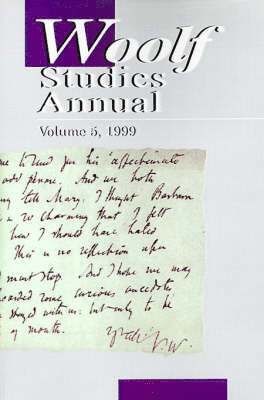 Woolf
Studies
Annual
Volume 5, 1999
me to send you his affectionate
odd phrase. And we both
tell Mary, I thought Barbara
so charming that I felt
how I should have hated
This is no reflection upon
I must stop. And I hope we may
some curious anecdotes
stayed with us: but only to be
of month.
V.W.